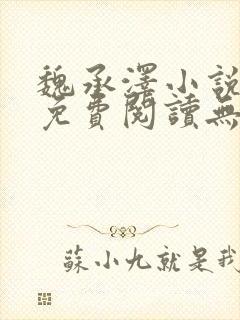 魏承澤小說
免費閱讀無
蘇小九就是我